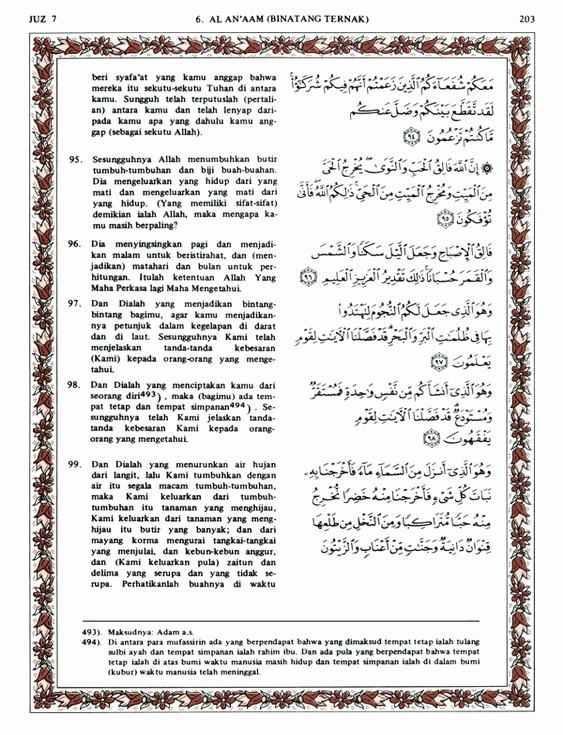 JUZ 7
6. AL AN'AAM (BINATANG TERNAK)
203
beri syafa'at yang kamu anggap bahwa
mereka itu sekutu-sekutu Tuhan di antara
kamu. Sungguh telah terputuslah (pertali-
an) antara kamu dan telah lenyap dari-
pada kamu apa yang dahulu kamu ang-
gap (sebagai sekutu Allah).
95. Sesungguhnya Allah menumbuhkan butir
tumbuh-tumbuhan dan biji buah-buahan.
Dia mengeluarkan yang hidup dari yang
mati dan mengeluarkan yang mati dari
yang hidup. (Yang memiliki sifat-sifat)
demikian ialah Allah, maka mengapa ka-
mu masih berpaling?
96. Dia menyingsingkan pagi dan menjadi-
kan malam untuk beristirahat, dan (men-
jadikan) matahari dan bulan untuk per-
hitungan. Itulah ketentuan Allah Yang
Maha Perkasa lagi Maha Mengetahui.
97. Dan Dialah yang menjadikan bintang-
bintang bagimu, agar kamu menjadikan-
nya petunjuk dalam kegelapan di darat
dan di laut. Sesungguhnya Kami telah
menjelaskan tanda-tanda kebesaran
(Kami) kepada orang-orang yang menge-
tahui.
98. Dan Dialah yang menciptakan kamu dari
seorang diri493) , maka (bagimu) ada tem-
pat tetap dan tempat simpanan494) . Se-
sungguhnya telah Kami jelaskan tanda-
tanda kebesaran Kami kepada orang-
orang yang mengetahui.
99. Dan Dialah yang menurunkan air hujan
dari langit, lalu Kami tumbuhkan dengan
air itu segala macam tumbuh-tumbuhan,
maka Kami keluarkan dari tumbuh-
tumbuhan itu tanaman yang menghijau,
Kami keluarkan dari tanaman yang meng-
hijau itu butir yang banyak; dan dari
mayang korma mengurai tangkai-tangkai
yang menjulai, dan kebun-kebun anggur,
dan (Kami keluarkan pula) zaitun dan
delima yang serupa dan yang tidak se-
rupa. Perhatikanlah buahnya di waktu
مَعَكُمْ شُفَعَآءَكُمُ ٱلَّذِينَ زَعَمْتُمْ أَنَّهُمْ فِيكُمْ شُرَكَٰٓؤُا۟
لَقَد تَّقَطَّعَ بَيْنَكُمْ وَضَلَّ عَنكُم
مَّا كُنتُمْ تَزْعُمُونَ ٩٤
۞ إِنَّ ٱللَّهَ فَالِقُ ٱلْحَبِّ وَٱلنَّوَىٰ ۖ يُخْرِجُ ٱلْحَىَّ
مِنَ ٱلْمَيِّتِ وَمُخْرِجُ ٱلْمَيِّتِ مِنَ ٱلْحَىِّ ۚ ذَٰلِكُمُ ٱللَّهُ ۖ فَأَنَّىٰ
تُؤْفَكُونَ ٩٥
فَالِقُ ٱلْإِصْبَاحِ وَجَعَلَ ٱلَّيْلَ سَكَنًا وَٱلشَّمْسَ
وَٱلْقَمَرَ حُسْبَانًا ۚ ذَٰلِكَ تَقْدِيرُ ٱلْعَزِيزِ ٱلْعَلِيمِ ٩٦
وَهُوَ ٱلَّذِى جَعَلَ لَكُمُ ٱلنُّجُومَ لِتَهْتَدُوا۟
بِهَا فِى ظُلُمَٰتِ ٱلْبَرِّ وَٱلْبَحْرِ ۗ قَدْ فَصَّلْنَا ٱلْءَايَٰتِ لِقَوْمٍ
يَعْلَمُونَ ٩٧
وَهُوَ ٱلَّذِىٓ أَنشَأَكُم مِّن نَّفْسٍ وَٰحِدَةٍ فَمُسْتَقَرٌّ
وَمُسْتَوْدَعٌ ۗ قَدْ فَصَّلْنَا ٱلْءَايَٰتِ لِقَوْمٍ
يَفْقَهُونَ ٩٨
وَهُوَ ٱلَّذِىٓ أَنزَلَ مِنَ ٱلسَّمَآءِ مَآءً فَأَخْرَجْنَا بِهِۦ
نَبَاتَ كُلِّ شَىْءٍ فَأَخْرَجْنَا مِنْهُ خَضِرًا نُّخْرِجُ
مِنْهُ حَبًّا مُّتَرَاكِبًا وَمِنَ ٱلنَّخْلِ مِن طَلْعِهَا
قِنْوَانٌ دَانِيَةٌ وَجَنَّٰتٍ مِّنْ أَعْنَابٍ وَٱلزَّيْتُونَ
493). Maksudnya: Adam a.s.
494). Di antara para mufassirin ada yang berpendapat bahwa yang dimaksud tempat tetap ialah tulang
sulbi ayah dan tempat simpanan ialah rahim ibu. Dan ada pula yang berpendapat bahwa tempat
tetap ialah di atas bumi waktu manusia masih hidup dan tempat simpanan ialah di dalam bumi
(kubur) waktu manusia telah meninggal.